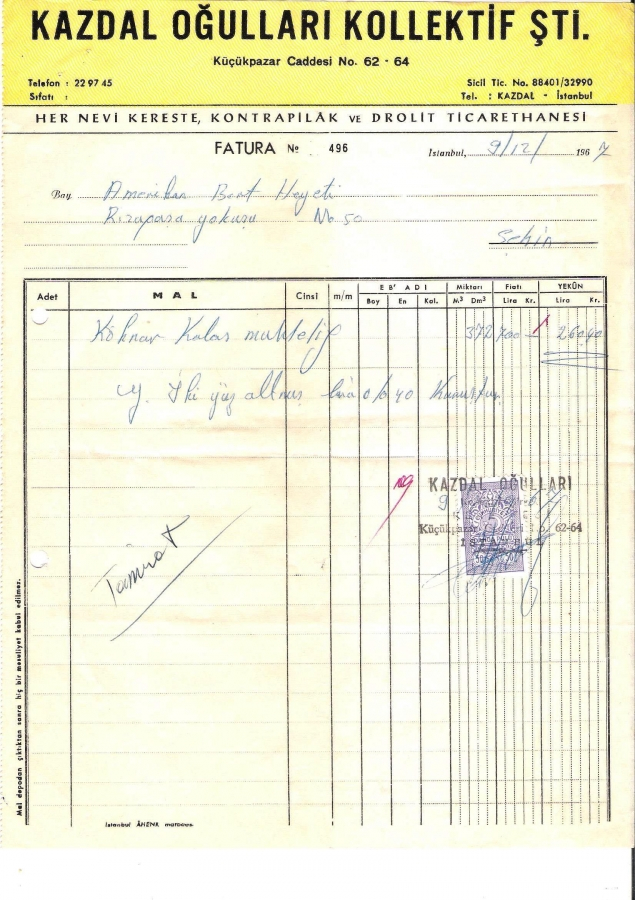 KAZDAL OĞULLARI KOLLEKTİF ŞTİ.
Küçükpazar Caddesi No. 62 - 64
Telefon : 22 97 45
Sicil Tic. No. 88401/32990
Sıfatı :
Tel. : KAZDAL - İstanbul
HER NEVİ KERESTE, KONTRAPİLÂK VE DROLİT TİCARETHANESİ
FATURA No 496
İstanbul, 9/12/ 1967
Bay Amerikan Bort Heyeti
Rızapaşa yokuşu No 50
Şehin
Adet MAL Cinsi m/m EB'ADI Miktarı Fiatı YEKÛN
Boy En Kal. M³ Dm³ Lira Kr. Lira Kr.
Köknar Kalas muhtelif 372 700 — 260.40
Y. İki yüz altmış lira 0/0 40 Kuruştur
KAZDAL OĞULLARI
Küçükpazar 62-64
İSTANBUL
Tamirat
Mal depodan çıktıktan sonra hiç bir mesuliyet kabul edilmez.
İstanbul ÂHENK matbaası.